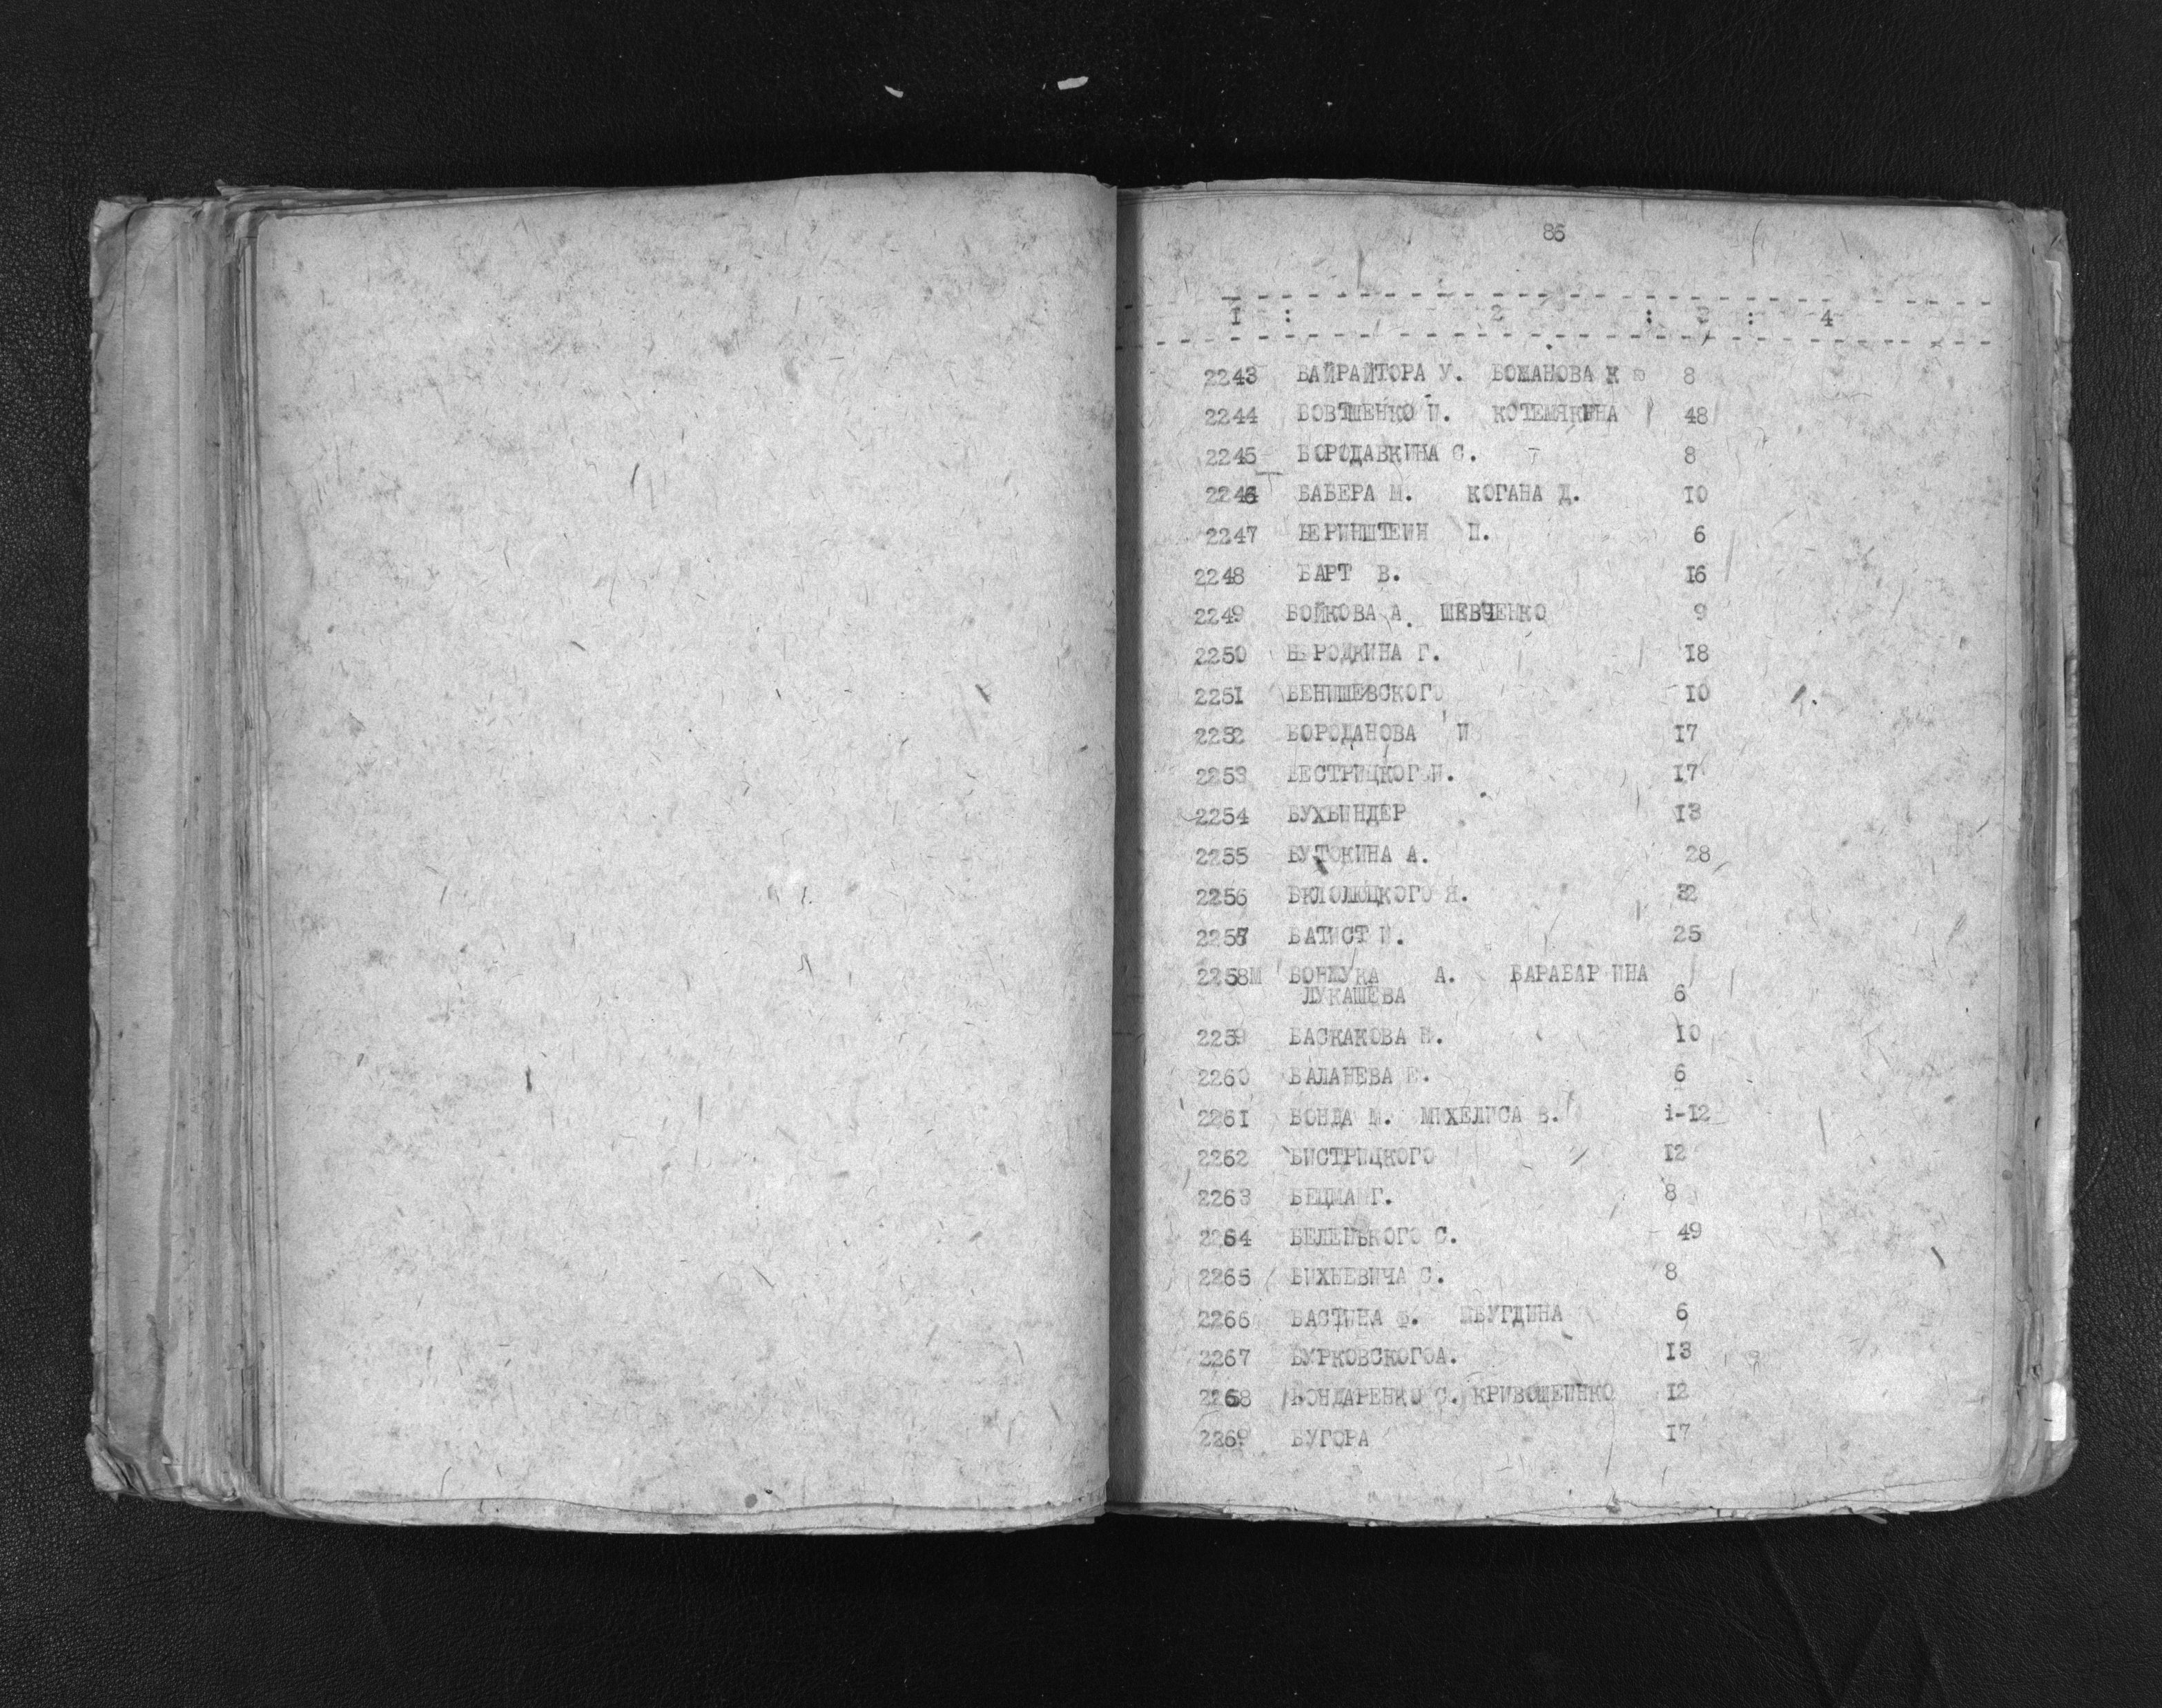 86
1 : 2 : 3 : 4
2243 БАЙРАЙТОРА У. БОЖАНОВА К 8
2244 БОВТШЕНКО П. КОТЕМЯКИНА 48
2245 БОРОДАВКИНА С. 8
2246 БАБЕРА М. КОГАНА Д. 10
2247 БЕРИНШТЕИН П. 6
2248 БАРТ В. 16
2249 БОЙКОВА А. ШЕВЧЕНКО 9
2250 Г. 18
2251 БЕНИШЕВСКОГО 10
2252 БОРОДАНОВА И 17
2253 БЕСТРИЦКОГО И. 17
2254 БУХБИНДЕР 13
2255 БУТОКИНА А. 28
2256 Я. 32
2257 БАТИСТ И. 25
2258М А. БАРАБАР ИНА
ЛУКАШЕВА 6
2259 БАСКАКОВА Н. 10
2260 БАЛАНЕВА Е. 6
2261 БОНДА М. МИХЕЛИСА В. 1-12
2262 БИСТРИЦКОГО 12
2263 Г. 8
2264 БЕЛЕНЬКОГО С. 49
2265 БИХНЕВИЧА С. 8
2266 БАСТИНА Ф. 6
2267 БУРКОВСКОГОА. 13
2268 БОНДАРЕНКО С. КРИВОШЕИНКО 12
2269 БУГОРА 17